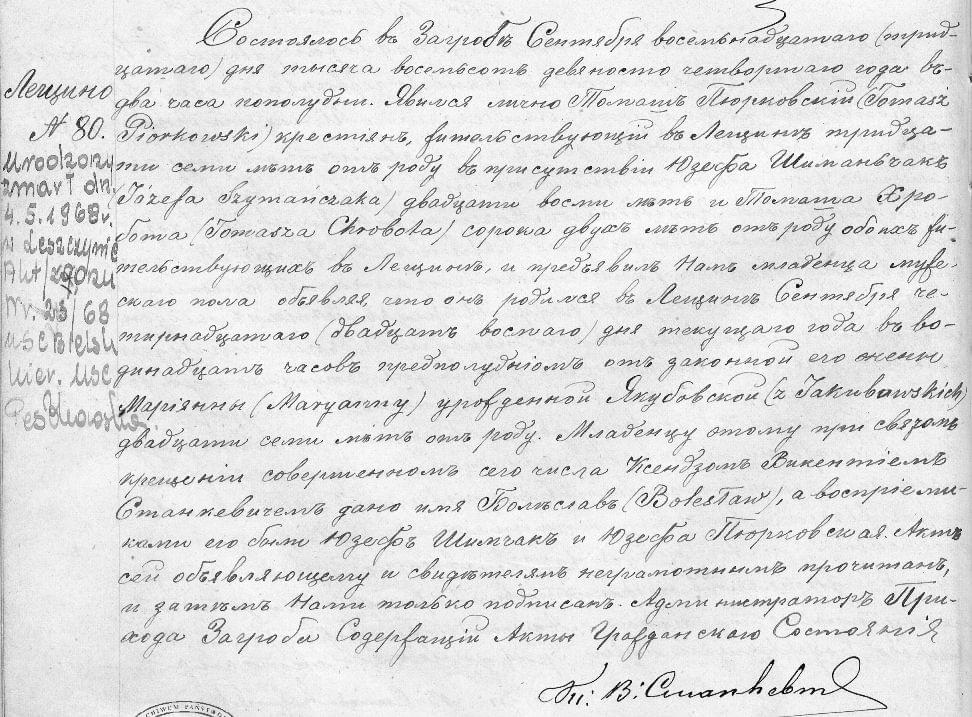 Состоялось въ Загробѣ Сентября восемьнадцатаго (трид-
цатаго) дня тысяча восемьсотъ девяносто четвертаго года въ
два часа пополудни. Явился лично Томашъ Пюрковскій (Tomasz
Piórkowski) крестіян, жительствующій въ Лещинѣ тридца-
ти семи лѣтъ отъ роду въ присутствіи Юзефа Шиманьчакъ
(Józefa Szymańczaka) двадцати восми лѣтъ и Томаша Хро-
бота (Tomasza Chrobota) сорока двухъ лѣтъ отъ роду обоихъ жи-
тельствующихъ въ Лещинѣ, и предъявилъ Намъ младенца муже-
скаго пола объявляя, что онъ родился въ Лещинѣ Сентября че-
тирнадцатаго (двадцать востаго) дня текущаго года въ во-
динадцать часовъ предполудніомъ отъ законной его жены
Маріянны (Maryanny) урожденной Якубовской (z Jakubowskich)
двадцати семи лѣтъ отъ роду. Младенцу этому при святомъ
крещеніи совершенномъ сего числа Ксендзомъ Викентіемъ
Станкевичемъ дано имя Болѣславъ (Bolesław), а воспріемни-
ками его были Юзефъ Шимчакъ и Юзефа Пюрковская. Актъ
сей объявляющему и свидѣтелямъ неграмотнымъ прочитанъ,
и затѣмъ Нами только подписан. Администраторъ При-
хода Загроба Содержащій Акты Гражданскаго Состоянія
Кс: В: Станкевич
Лещино
№ 80.
Urodzony
zmarł dn.
4.5.1968 r.
w Leszczynie
Akt zgonu
Nr. 23/68
USC Bielsk
Kier. USC